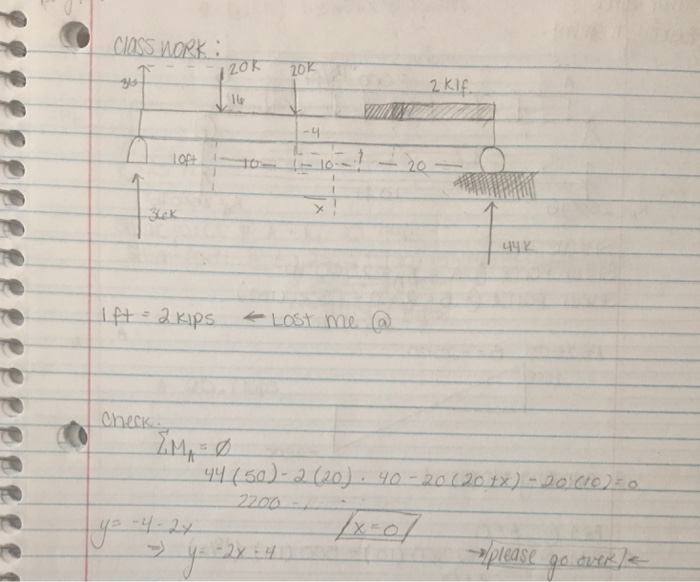 classwork:
20K 20K
36 16 2 klf.
-4
10ft 10 10 20
x
36K
44K
1ft = 2 kips ← Lost me @
Check.
ΣM_A = Ø
44(50) - 2(20) · 40 - 20(20+x) - 20(10) = 0
2200 - ...
y = -4 - 2x x = 0
⇒ y = -2x - 4 → please go over! ←